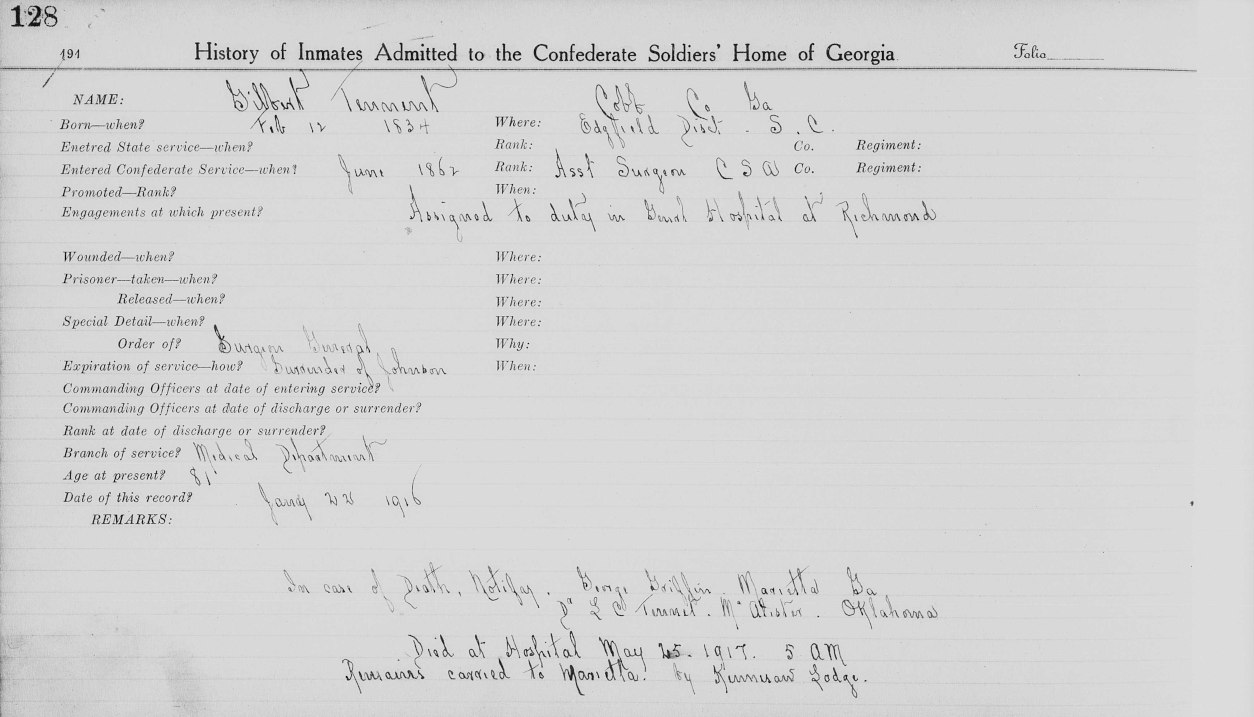 128
191 History of Inmates Admitted to the Confederate Soldiers' Home of Georgia Folio
NAME: Gilbert Tennent Cobb Co Ga
Born—when? Feb 12 1834 Where: Edgfield Disct. S. C.
Enetred State service—when? Rank: Co. Regiment:
Entered Confederate Service—when? June 1862 Rank: Asst Surgeon C S A Co. Regiment:
Promoted—Rank? When:
Engagements at which present? Assigned to duty in Genrl Hospital at Richmond
Wounded—when? Where:
Prisoner—taken—when? Where:
Released—when? Where:
Special Detail—when? Where:
Order of? Surgeon General Why:
Expiration of service—how? Surrender of Johnson When:
Commanding Officers at date of entering service?
Commanding Officers at date of discharge or surrender?
Rank at date of discharge or surrender?
Branch of service? Medical Department
Age at present? 81
Date of this record? Jany 22 1916
REMARKS:
In case of Death, Notifay. George Griffin. Marietta Ga
Dr L C Tennet. Mc Alister. Oklahoma
Died at Hospital May 25. 1917. 5 AM
Remains carried to Marietta. by Kennesaw Lodge.